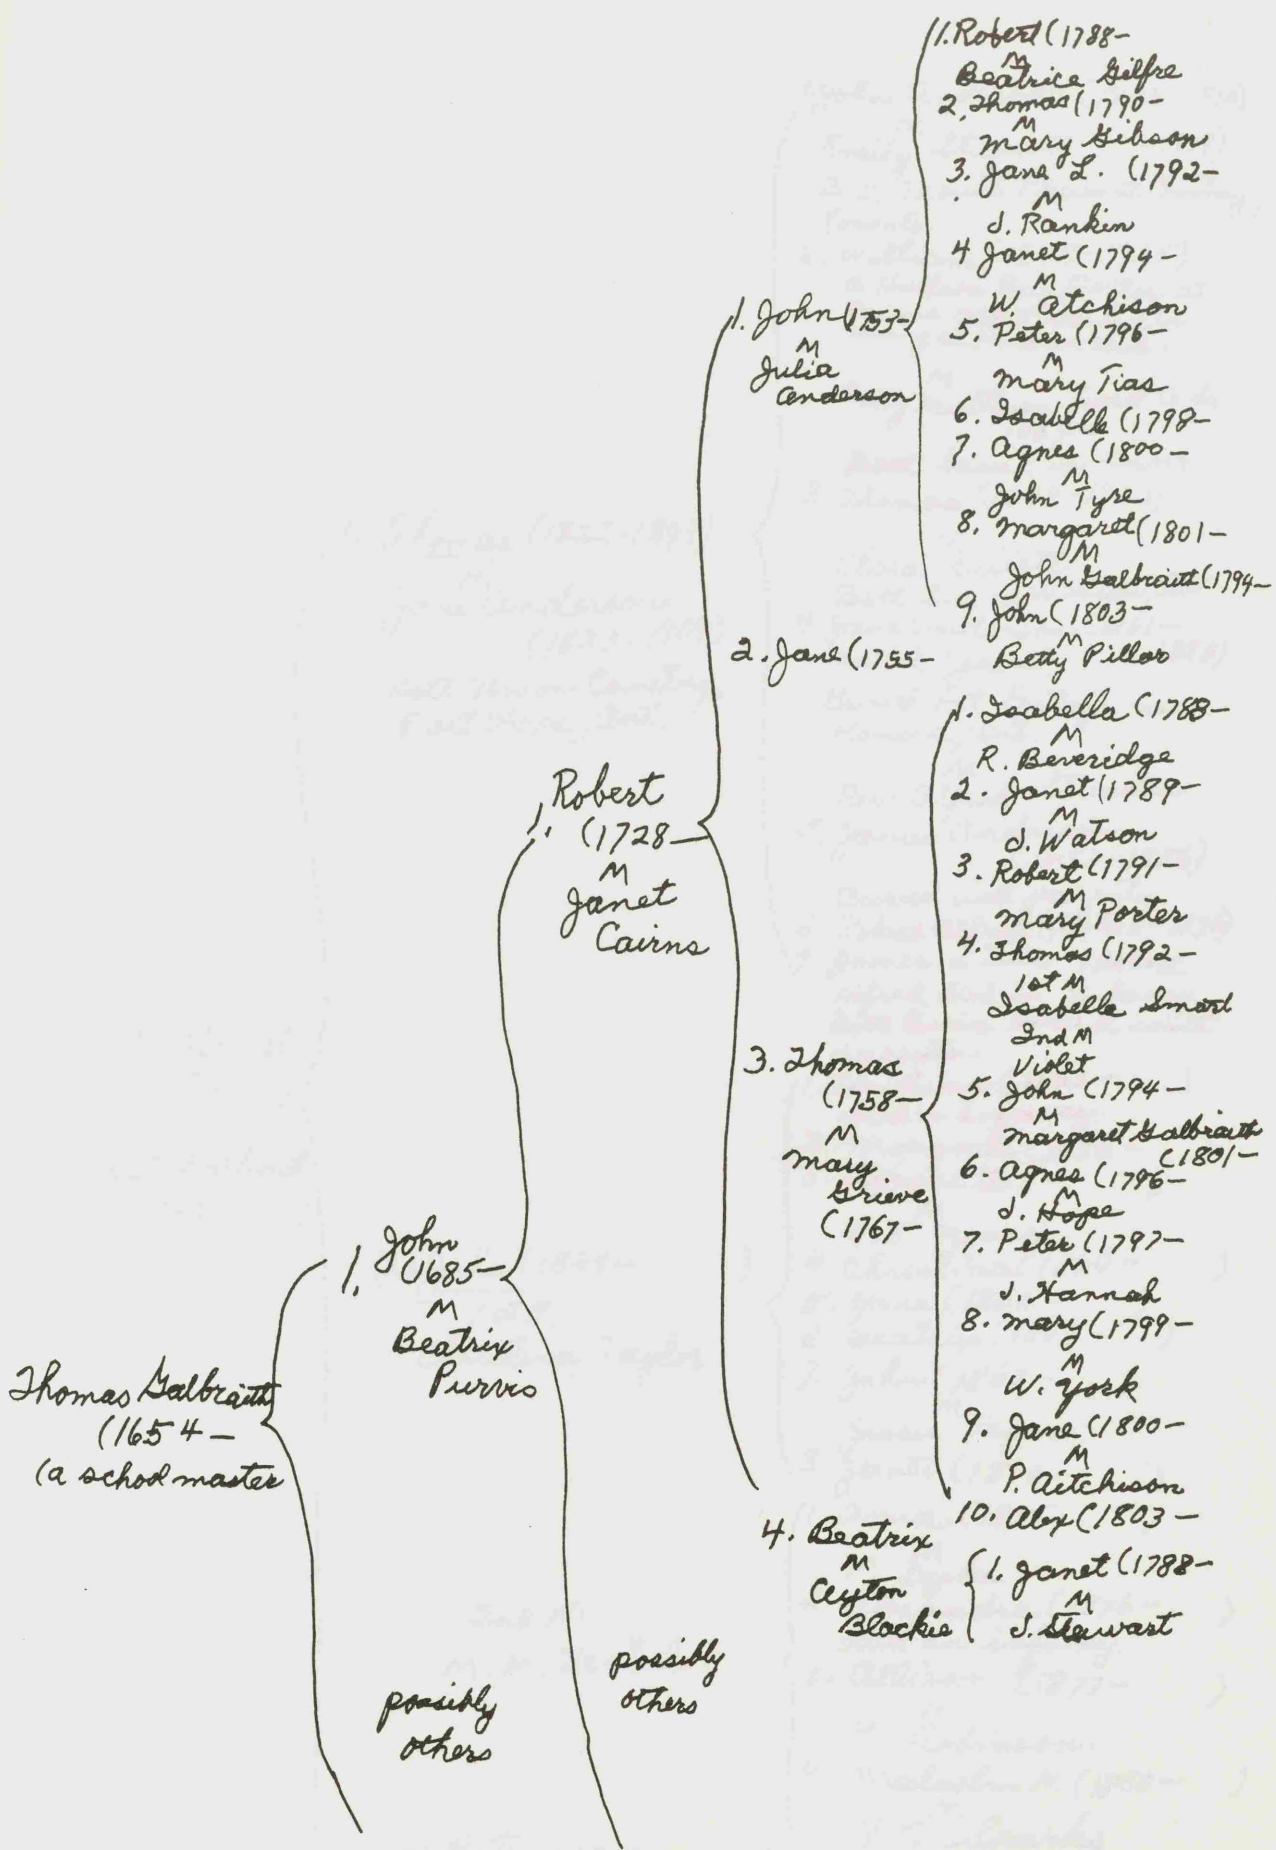 Thomas Galbraith
(1654 —
(a school master
1. John
(1685 —
M
Beatrix
Purvis
possibly
others
1. Robert
(1728 —
M
Janet
Cairns
possibly
others
1. John (1753 -
M
Julia
Anderson
2. Jane (1755 -
3. Thomas
(1758 -
M
Mary
Grieve
(1767 -
4. Beatrix
M
Blackie
1. Robert (1788 -
M
Beatrice Gilfre
2. Thomas (1790 -
M
Mary Gibson
3. Jane L. (1792 -
M
J. Rankin
4 Janet (1794 -
M
W. Atchison
5. Peter (1796 -
M
Mary Tias
6. Isabelle (1798 -
7. Agnes (1800 -
M
John Tyre
8. Margaret (1801 -
M
John Galbraith (1794 -
9. John (1803 -
M
Betty Pillar
1. Isabella (1788 -
M
R. Beveridge
2. Janet (1789 -
M
J. Watson
3. Robert (1791 -
M
Mary Porter
4. Thomas (1792 -
1st M
Isabelle Smart
2nd M
Violet
5. John (1794 -
M
Margaret Galbraith
(1801 -
6. Agnes (1796 -
M
J. Hope
7. Peter (1797 -
M
J. Hannah
8. Mary (1799 -
M
W. York
9. Jane (1800 -
M
P. Aitchison
10. Alex (1803 -
1. Janet (1788 -
M
J. Stewart